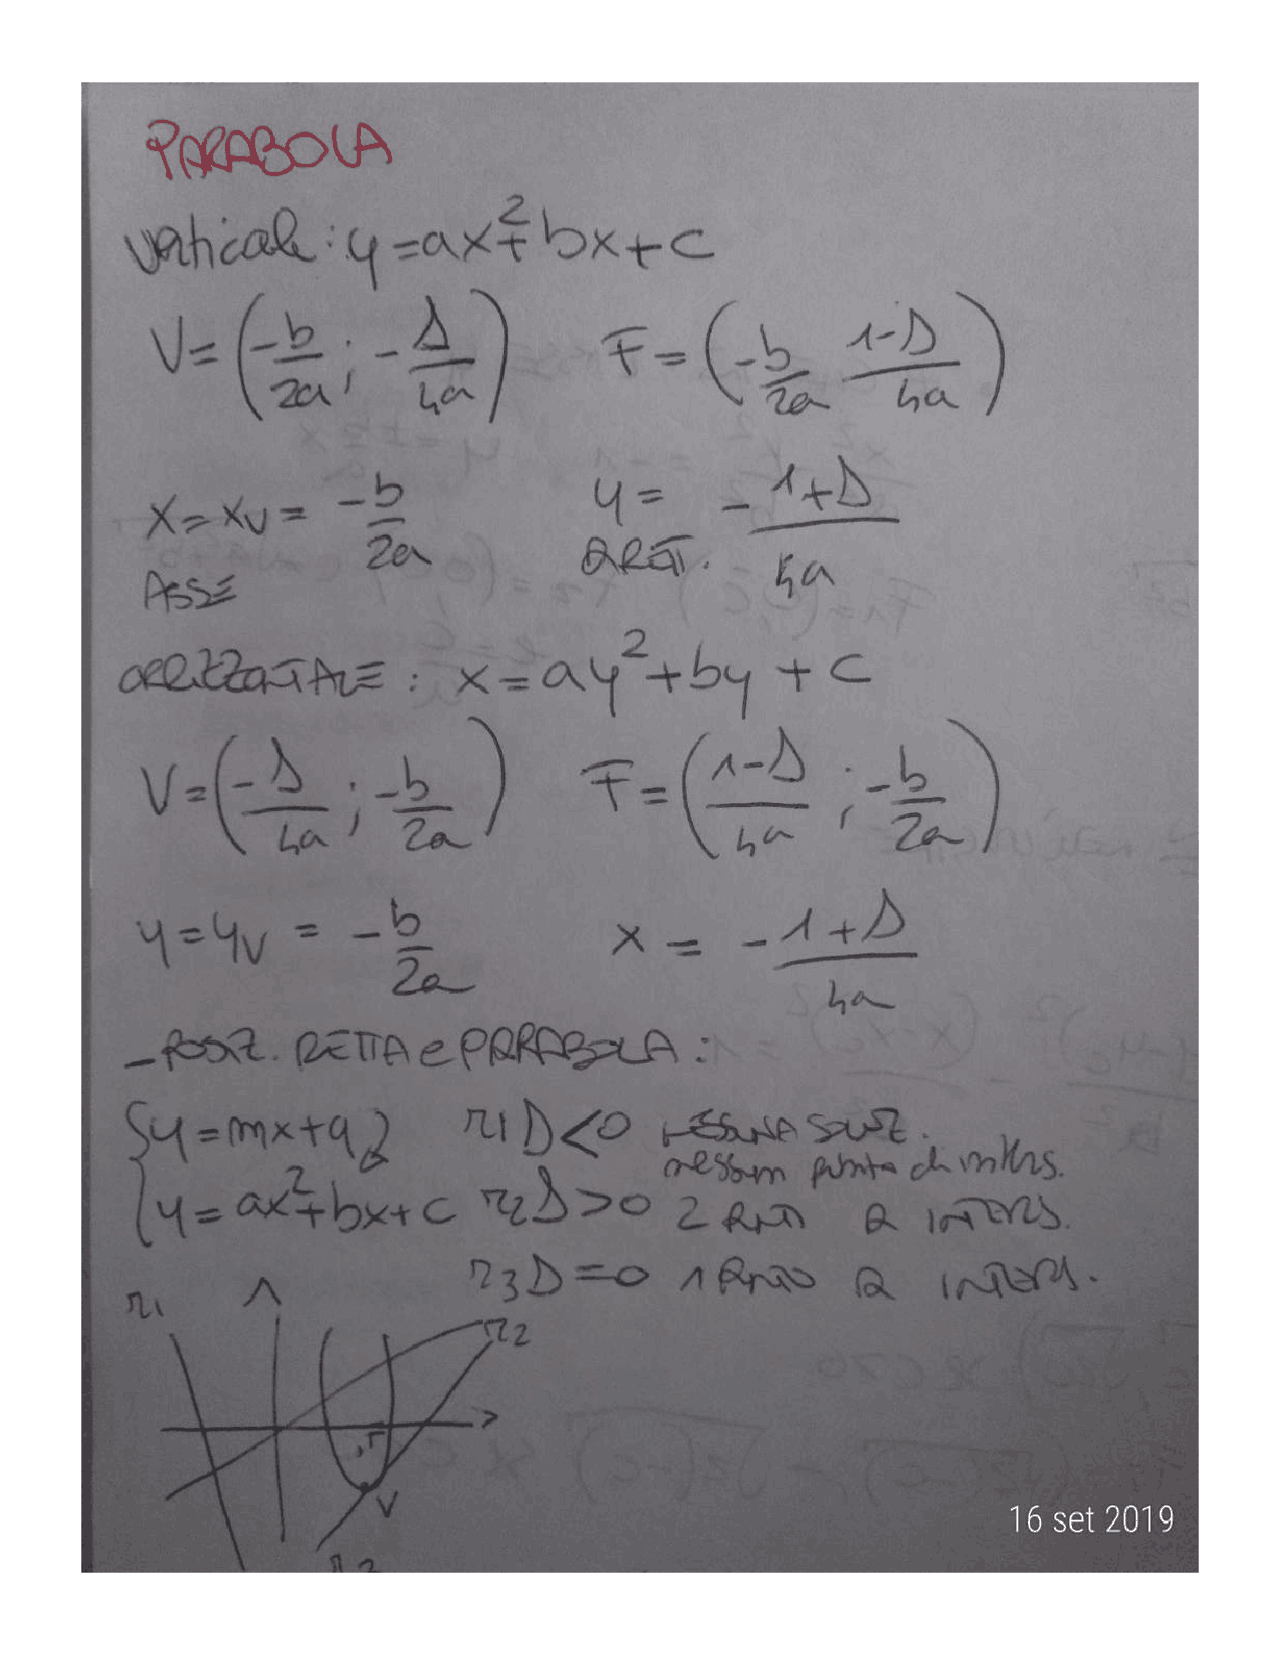 PARABOLA
verticale: y=ax²+bx+c
V=(-b/2a; -Δ/4a) F=(-b/2a 1-Δ/4a)
x=xv= -b/2a y= -1+Δ/4a
ASSE DRETT.
ORIZZONTALE: x=ay²+by+c
V=(-Δ/4a; -b/2a) F=(1-Δ/4a; -b/2a)
y=yv = -b/2a x = -1+Δ/4a
- POSIZ. RETTA e PARABOLA:
{y=mx+q r1 Δ<0 NESSUNA SOLUZ.
nessun punto di inters.
{y=ax²+bx+c r2 Δ>0 2 PNTI DI INTERS.
r3 Δ=0 1 PNTO DI INTERS.
r1
r2
F
V
r3
16 set 2019